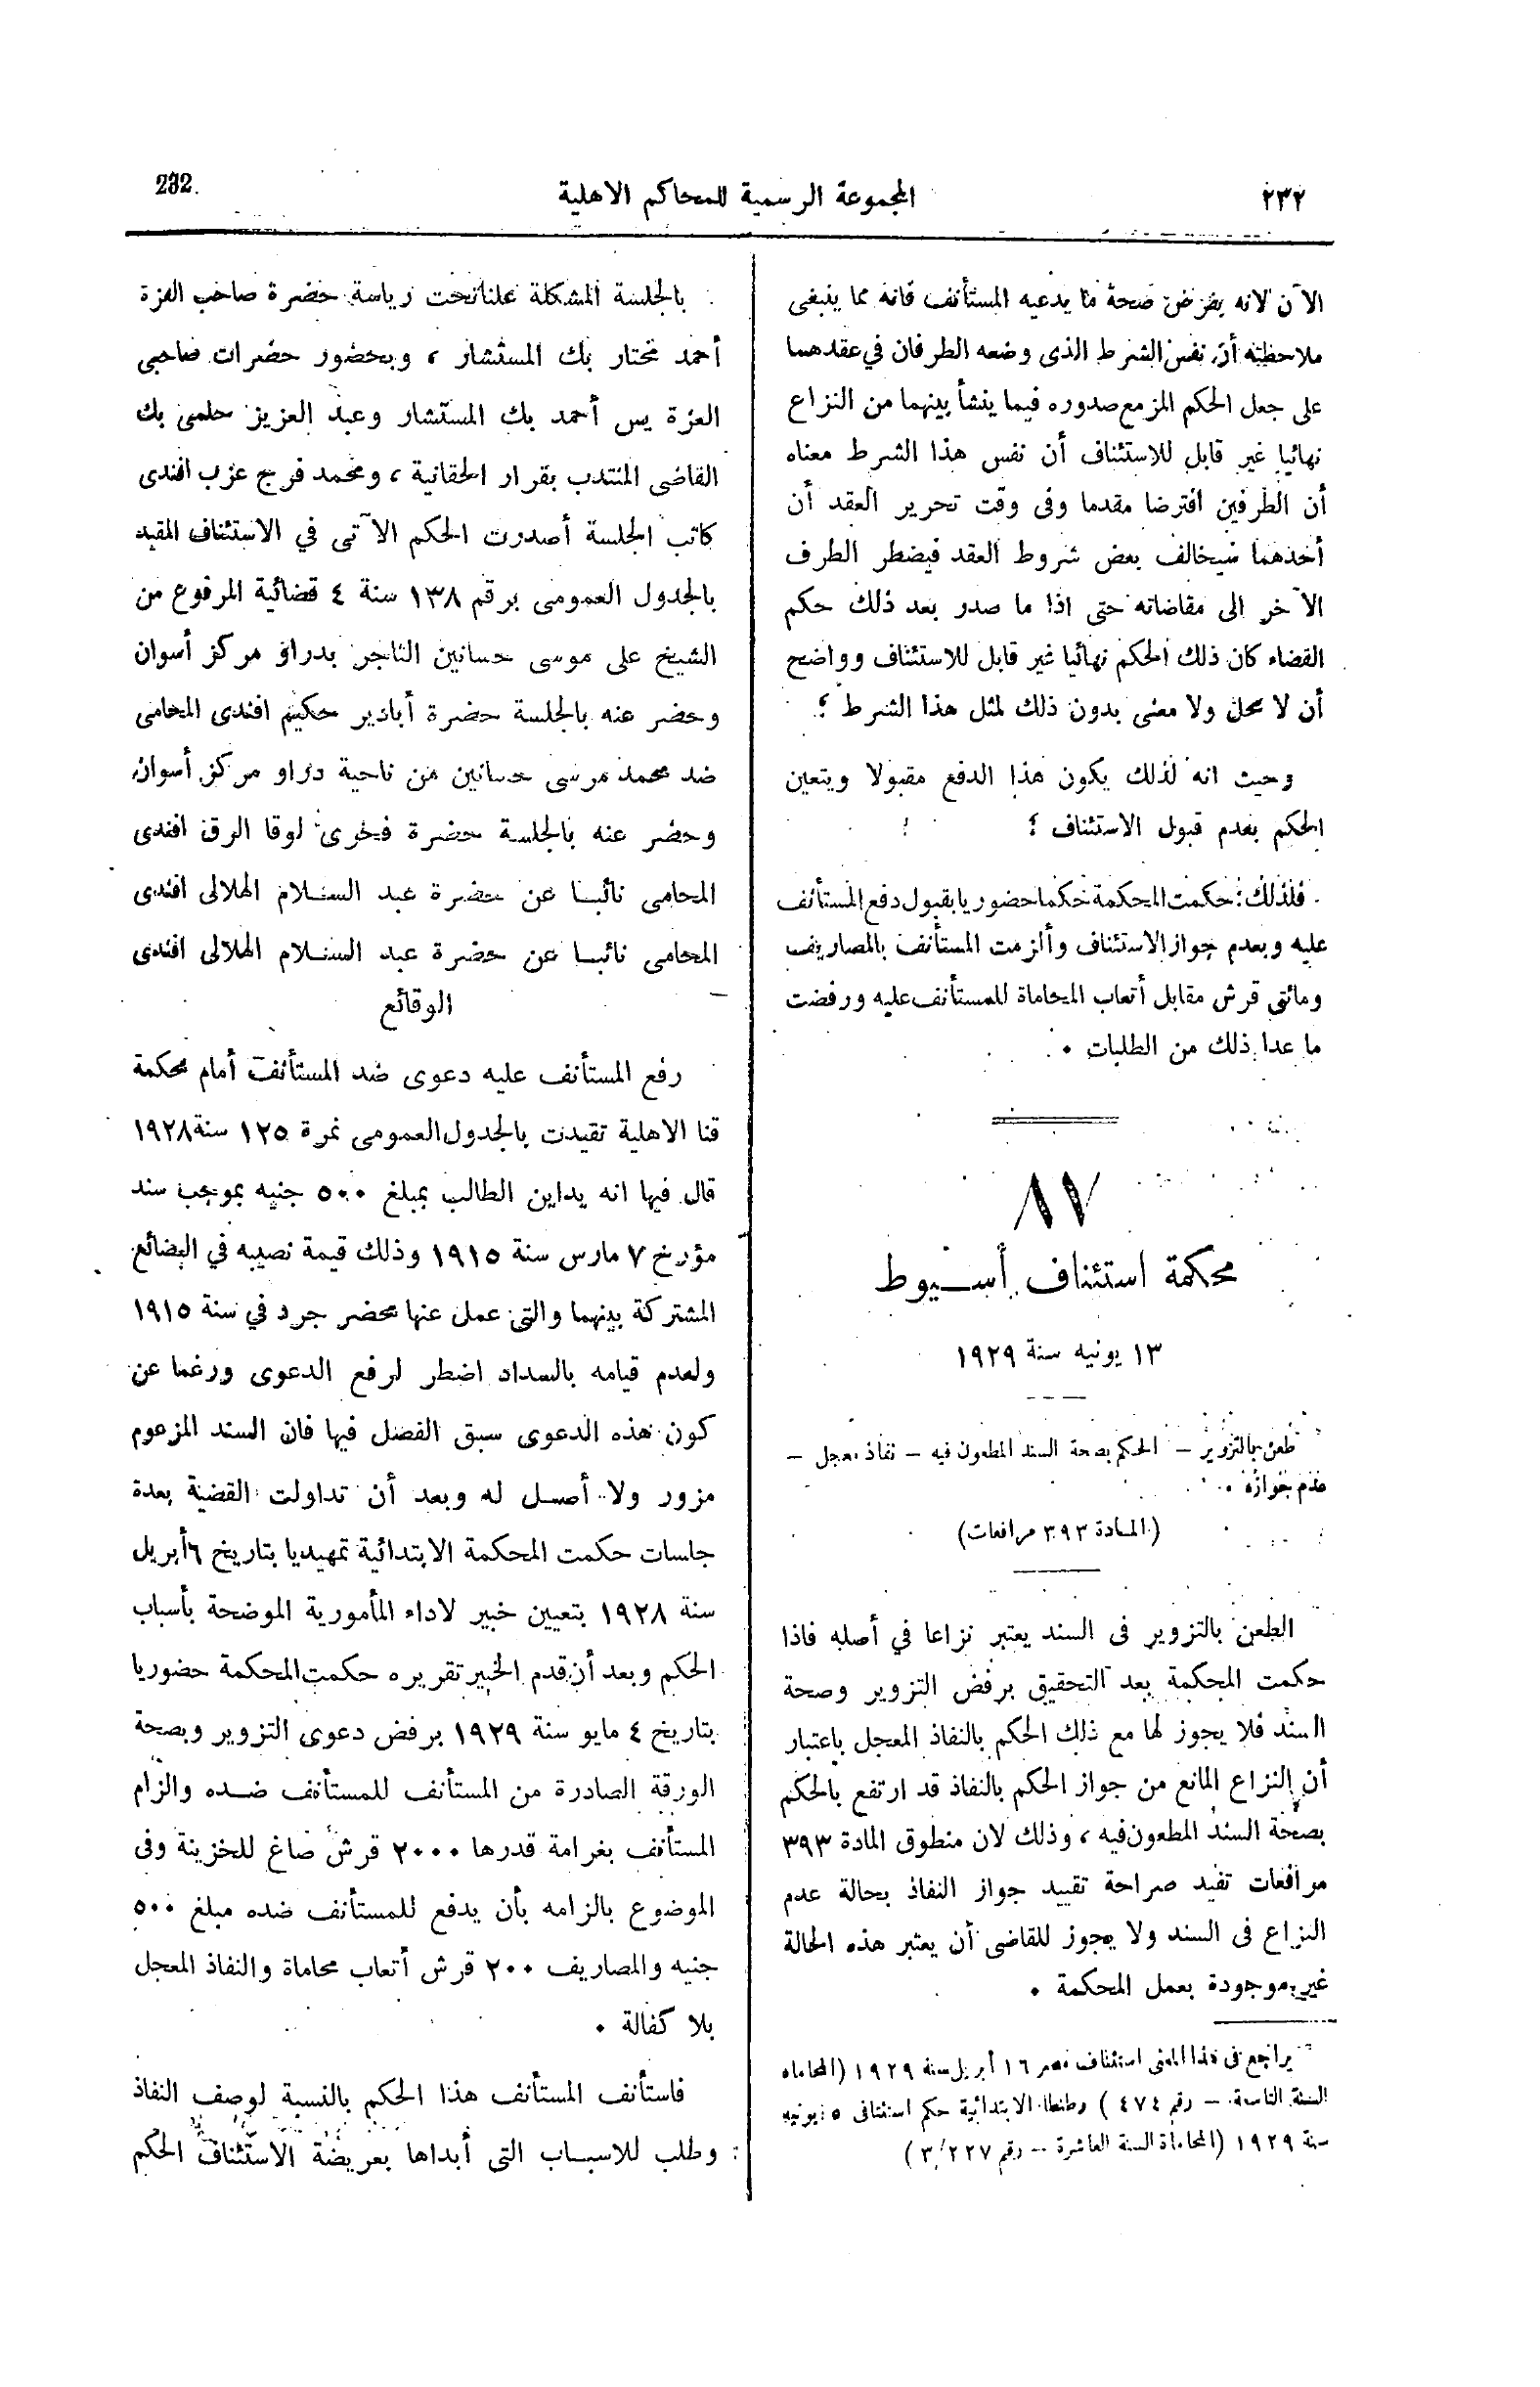 ٢٣٢
المجموعة الرسمية للمحاكم الاهلية
232
الآن لانه بفرض صحة ما يدعيه المستأنف فانه مما ينبغى
ملاحظته أن نفس الشرط الذى وضعه الطرفان في عقدهما
على جعل الحكم المزمع صدوره فيما ينشأ بينهما من النزاع
نهائيا غير قابل للاستئناف أن نفس هذا الشرط معناه
أن الطرفين افترضا مقدما وفى وقت تحرير العقد أن
أحدهما سيخالف بعض شروط العقد فيضطر الطرف
الآخر الى مقاضاته حتى اذا ما صدر بعد ذلك حكم
القضاء كان ذلك الحكم نهائيا غير قابل للاستئناف وواضح
أن لا محل ولا معنى بدون ذلك لمثل هذا الشرط ؛
وحيث انه لذلك يكون هذا الدفع مقبولا ويتعين
الحكم بعدم قبول الاستئناف ؛
فلذلك : حكمت المحكمة حكما حضوريا بقبول دفع المستأنف
عليه وبعدم جواز الاستئناف وألزمت المستأنف بالمصاريف
ومائتى قرش مقابل أتعاب المحاماة للمستأنف عليه ورفضت
ما عدا ذلك من الطلبات .
٨٧
محكمة استئناف أسيوط
١٣ يونيه سنة ١٩٢٩
طعن بالتزوير – الحكم بصحة السند المطعون فيه – نفاذ معجل –
عدم جوازه .
(المادة ٣٩٣ مرافعات)
الطعن بالتزوير فى السند يعتبر نزاعا في أصله فاذا
حكمت المحكمة بعد التحقيق برفض التزوير وصحة
السند فلا يجوز لها مع ذلك الحكم بالنفاذ المعجل باعتبار
أن النزاع المانع من جواز الحكم بالنفاذ قد ارتفع بالحكم
بصحة السند المطعون فيه ، وذلك لان منطوق المادة ٣٩٣
مرافعات تفيد صراحة تقييد جواز النفاذ بحالة عدم
النزاع فى السند ولا يجوز للقاضى أن يعتبر هذه الحالة
غير موجودة بعمل المحكمة .
يراجع فى هذا المعنى استئناف مصر ١٦ أبريل سنة ١٩٢٩ (المحاماه
السنة التاسعة – رقم ٤٧٤ ) وطنطا الابتدائية حكم استئنافى ٥ يونيه
سنة ١٩٢٩ (المحاماة السنة العاشرة – رقم ٣/٢٢٧)
بالجلسة المشكلة علنا تحت رياسة حضرة صاحب العزة
أحمد مختار بك المستشار ، وبحضور حضرات صاحبى
العزة يس أحمد بك المستشار وعبد العزيز حلمى بك
القاضى المنتدب بقرار الحقانية ، ومحمد فرج عزب افندى
كاتب الجلسة أصدرت الحكم الآتى في الاستئناف المقيد
بالجدول العمومى برقم ١٣٨ سنة ٤ قضائية المرفوع من
الشيخ على موسى حسانين التاجر بدراو مركز أسوان
وحضر عنه بالجلسة حضرة أبادير حكيم افندى المحامى
ضد محمد مرسى حسانين من ناحية دراو مركز أسوان
وحضر عنه بالجلسة حضرة فخرى لوقا الرق افندى
المحامى نائبا عن حضرة عبد السلام الهلالى افندى
المحامى نائبا عن حضرة عبد السلام الهلالى افندى
الوقائع
رفع المستأنف عليه دعوى ضد المستأنف أمام محكمة
قنا الاهلية تقيدت بالجدول العمومى نمرة ١٢٥ سنة ١٩٢٨
قال فيها انه يداين الطالب بمبلغ ٥٠٠ جنيه بموجب سند
مؤرخ ٧ مارس سنة ١٩١٥ وذلك قيمة نصيبه في البضائع
المشتركة بينهما والتى عمل عنها محضر جرد في سنة ١٩١٥
ولعدم قيامه بالسداد اضطر لرفع الدعوى ورغما عن
كون هذه الدعوى سبق الفصل فيها فان السند المزعوم
مزور ولا أصل له وبعد أن تداولت القضية بعدة
جلسات حكمت المحكمة الابتدائية تمهيديا بتاريخ ٦ أبريل
سنة ١٩٢٨ بتعيين خبير لاداء المأمورية الموضحة بأسباب
الحكم وبعد أن قدم الخبير تقريره حكمت المحكمة حضوريا
بتاريخ ٤ مايو سنة ١٩٢٩ برفض دعوى التزوير وبصحة
الورقة الصادرة من المستأنف للمستأنف ضده والزام
المستأنف بغرامة قدرها ٢٠٠٠ قرش صاغ للخزينة وفى
الموضوع بالزامه بأن يدفع للمستأنف ضده مبلغ ٥٠٠
جنيه والمصاريف ٢٠٠ قرش أتعاب محاماة والنفاذ المعجل
بلا كفالة .
فاستأنف المستأنف هذا الحكم بالنسبة لوصف النفاذ
وطلب للاسباب التى أبداها بعريضة الاستئناف الحكم